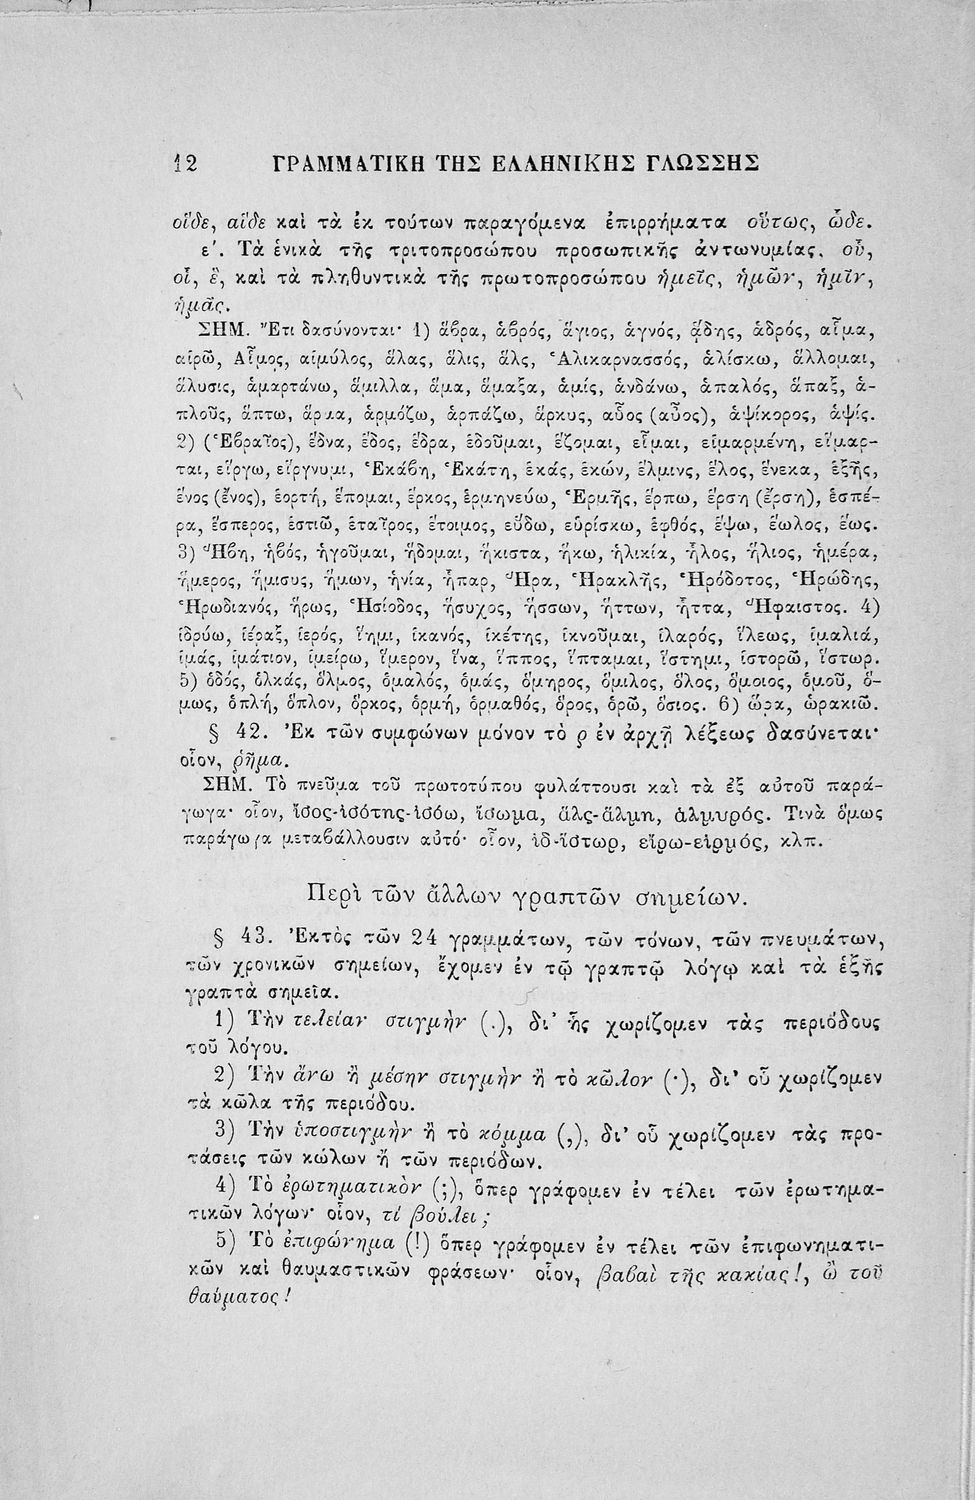 12 ΓΡΑΜΜΑΤΙΚΗ ΤΗΣ ΕΛΛΗΝΙΚΗΣ ΓΛΩΣΣΗΣ
οἵδε, αἵδε καὶ τὰ ἐκ τούτων παραγόμενα ἐπιρρήματα οὕτως, ὧδε.
ε΄. Τὰ ἑνικὰ τῆς τριτοπροσώπου προσωπικῆς ἀντωνυμίας, οὗ,
οἷ, ἕ, καὶ τὰ πληθυντικὰ τῆς πρωτοπροσώπου ἡμεῖς, ἡμῶν, ἡμῖν,
ἡμᾶς.
ΣΗΜ. Ἔτι δασύνονται· 1) ἅβρα, ἁβρός, ἅγιος, ἁγνός, ᾅδης, ἁδρός, αἷμα,
αἱρῶ, Αἷμος, αἱμύλος, ἅλας, ἅλις, ἅλς, Ἁλικαρνασσός, ἁλίσκω, ἅλλομαι,
ἅλυσις, ἁμαρτάνω, ἅμιλλα, ἅμα, ἅμαξα, ἁμίς, ἁνδάνω, ἁπαλός, ἅπαξ, ἁ-
πλοῦς, ἅπτω, ἅρμα, ἁρμόζω, ἁρπάζω, ἅρκυς, αὗος (αὖος), ἁψίκορος, ἁψίς.
2) (Ἑβραῖος), ἕδνα, ἕδος, ἕδρα, ἑδοῦμαι, ἕζομαι, εἷμαι, εἱμαρμένη, εἵμαρ-
ται, εἵργω, εἵργνυμι, Ἑκάβη, Ἑκάτη, ἑκάς, ἑκών, ἕλμινς, ἕλος, ἕνεκα, ἑξῆς,
ἕνος (ἔνος), ἑορτή, ἕπομαι, ἕρκος, ἑρμηνεύω, Ἑρμῆς, ἕρπω, ἕρση (ἔρση), ἑσπέ-
ρα, ἕσπερος, ἑστιῶ, ἑταῖρος, ἕτοιμος, εὕδω, εὑρίσκω, ἑφθός, ἕψω, ἕωλος, ἕως.
3) Ἥβη, ἡβός, ἡγοῦμαι, ἥδομαι, ἥκιστα, ἥκω, ἡλικία, ἧλος, ἥλιος, ἡμέρα,
ἥμερος, ἥμισυς, ἥμων, ἡνία, ἧπαρ, Ἥρα, Ἡρακλῆς, Ἡρόδοτος, Ἡρώδης,
Ἡρωδιανός, ἥρως, Ἡσίοδος, ἥσυχος, ἥσσων, ἥττων, ἧττα, Ἥφαιστος. 4)
ἱδρύω, ἱέραξ, ἱερός, ἵημι, ἱκανός, ἱκέτης, ἱκνοῦμαι, ἱλαρός, ἵλεως, ἱμαλιά,
ἱμάς, ἱμάτιον, ἱμείρω, ἵμερον, ἵνα, ἵππος, ἵπταμαι, ἵστημι, ἱστορῶ, ἵστωρ.
5) ὁδός, ὁλκάς, ὅλμος, ὁμαλός, ὁμάς, ὅμηρος, ὅμιλος, ὅλος, ὅμοιος, ὁμοῦ, ὅ-
μως, ὁπλή, ὅπλον, ὅρκος, ὁρμή, ὁρμαθός, ὅρος, ὁρῶ, ὅσιος. 6) ὥρα, ὡρακιῶ.
§ 42. Ἐκ τῶν συμφώνων μόνον τὸ ρ ἐν ἀρχῇ λέξεως δασύνεται·
οἷον, ῥῆμα.
ΣΗΜ. Τὸ πνεῦμα τοῦ πρωτοτύπου φυλάττουσι καὶ τὰ ἐξ αὐτοῦ παρά-
γωγα· οἷον, ἴσος-ἰσότης-ἰσόω, ἴσωμα, ἅλς-ἅλμη, ἁλμυρός. Τινὰ ὅμως
παράγωγα μεταβάλλουσιν αὐτό· οἷον, ἰδ-ἵστωρ, εἴρω-εἱρμός, κλπ.
Περὶ τῶν ἄλλων γραπτῶν σημείων.
§ 43. Ἐκτὸς τῶν 24 γραμμάτων, τῶν τόνων, τῶν πνευμάτων,
τῶν χρονικῶν σημείων, ἔχομεν ἐν τῷ γραπτῷ λόγῳ καὶ τὰ ἑξῆς
γραπτὰ σημεῖα.
1) Τὴν τελείαν στιγμὴν (.), δι᾿ ἧς χωρίζομεν τὰς περιόδους
τοῦ λόγου.
2) Τὴν ἄνω ἢ μέσην στιγμὴν ἢ τὸ κῶλον (·), δι᾿ οὗ χωρίζομεν
τὰ κῶλα τῆς περιόδου.
3) Τὴν ὑποστιγμὴν ἢ τὸ κόμμα (,), δι᾿ οὗ χωρίζομεν τὰς προ-
τάσεις τῶν κώλων ἢ τῶν περιόδων.
4) Τὸ ἐρωτηματικὸν (;), ὅπερ γράφομεν ἐν τέλει τῶν ἐρωτημα-
τικῶν λόγων· οἷον, τί βούλει ;
5) Τὸ ἐπιφώνημα (!) ὅπερ γράφομεν ἐν τέλει τῶν ἐπιφωνηματι-
κῶν καὶ θαυμαστικῶν φράσεων· οἷον, βαβαὶ τῆς κακίας!, ὢ τοῦ
θαύματος !